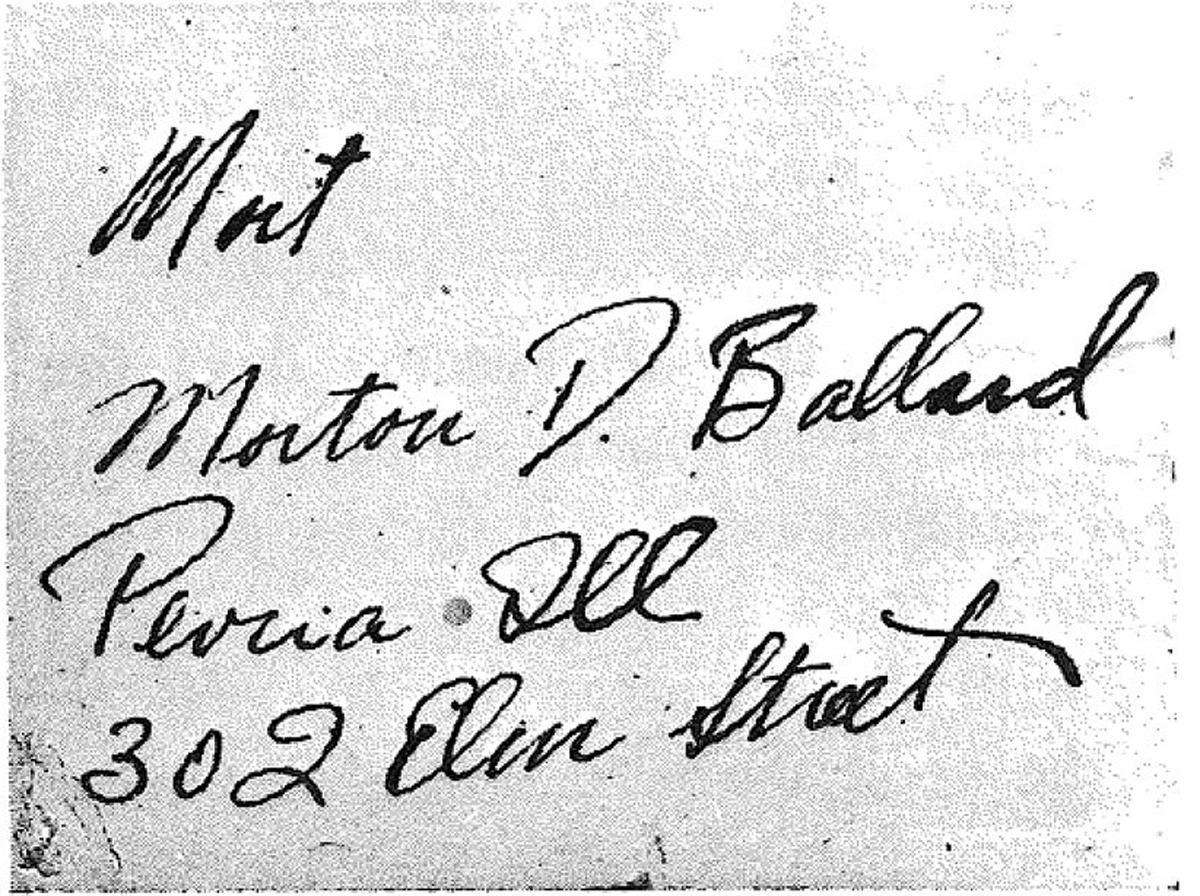 Mort
Morton D. Ballard
Peoria Ill
302 Elm Street